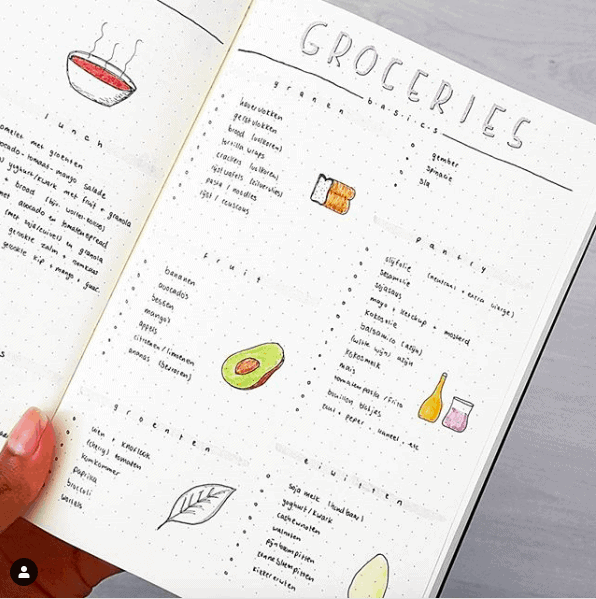 lunch
omelet met groenten
avocado-tomaat-mango salade
yoghurt/kwark met fruit + granola
brood
met avocado en tomatenspread
en granola
gerookte zalm +
gerookte kip + mango +
GROCERIES
basics
granen
havervlokken
gerstvlokken
brood (volkoren)
tortilla wraps
crackers (volkoren)
rijstwafels (zilvervlies)
pasta / noodles
rijst / couscous
gember
spinazie
sla
fruit
bananen
avocados
bessen
mango's
appels
citroenen/limoenen
ananas (bevroren)
pantry
olijfolie (neutraal + extra vierge)
sesamolie
sojasaus
mayo + ketchup + mosterd
kokosolie
balsamico (azijn)
(witte wijn) azijn
kokosmelk
mais
tomatenpasta / frito
bouillon blokjes
zout + peper + kaneel + etc
groenten
uien + knoflook
(cherry) tomaten
komkommer
paprika
broccoli
wortels
eiwitten
soja melk (houdbaar)
yoghurt / kwark
cashewnoten
walnoten
pijnboompitten
zonnebloempitten
kikkererwten